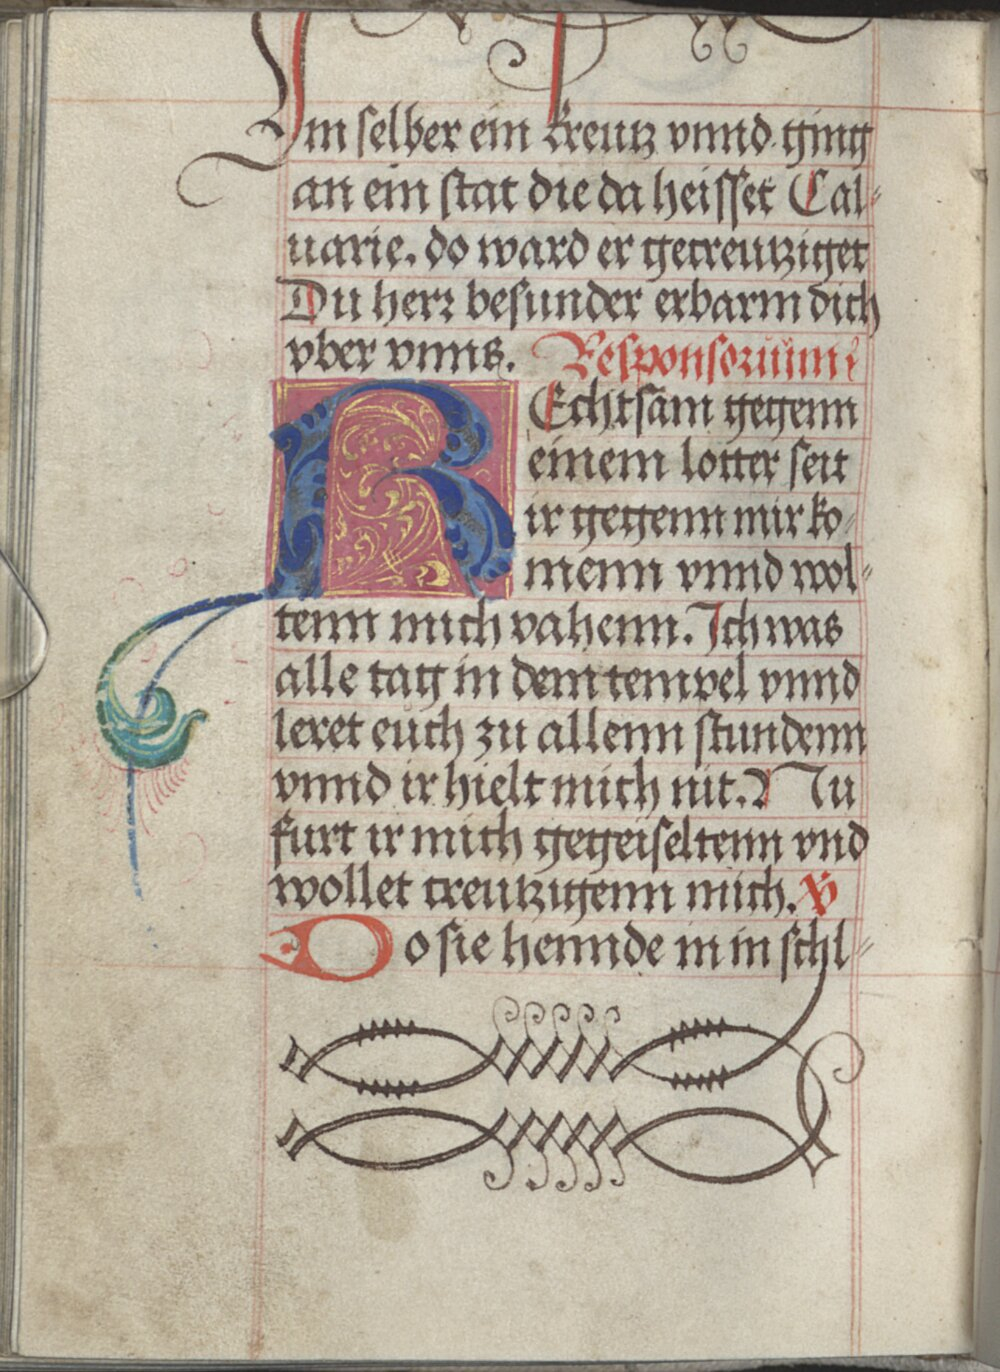 Im selber ein kreutz vnnd ging
an ein stat die da heisset Cal-
uarie. do ward er gecreutziget
Du herr besunder erbarm dich
vber vnns. Responsorium
REchtsam gegenn
einem lotter seit
ir gegenn mir ko-
menn vnnd wol-
tenn mich vahenn. Ich was
alle tag in dem tempel vnnd
leret euch zu allenn stundenn
vnnd ir hielt mich nit. Nu
furt ir mich gegeiseltenn vnd
wollet creutzigenn mich. V
Do sie hennde in in schl-